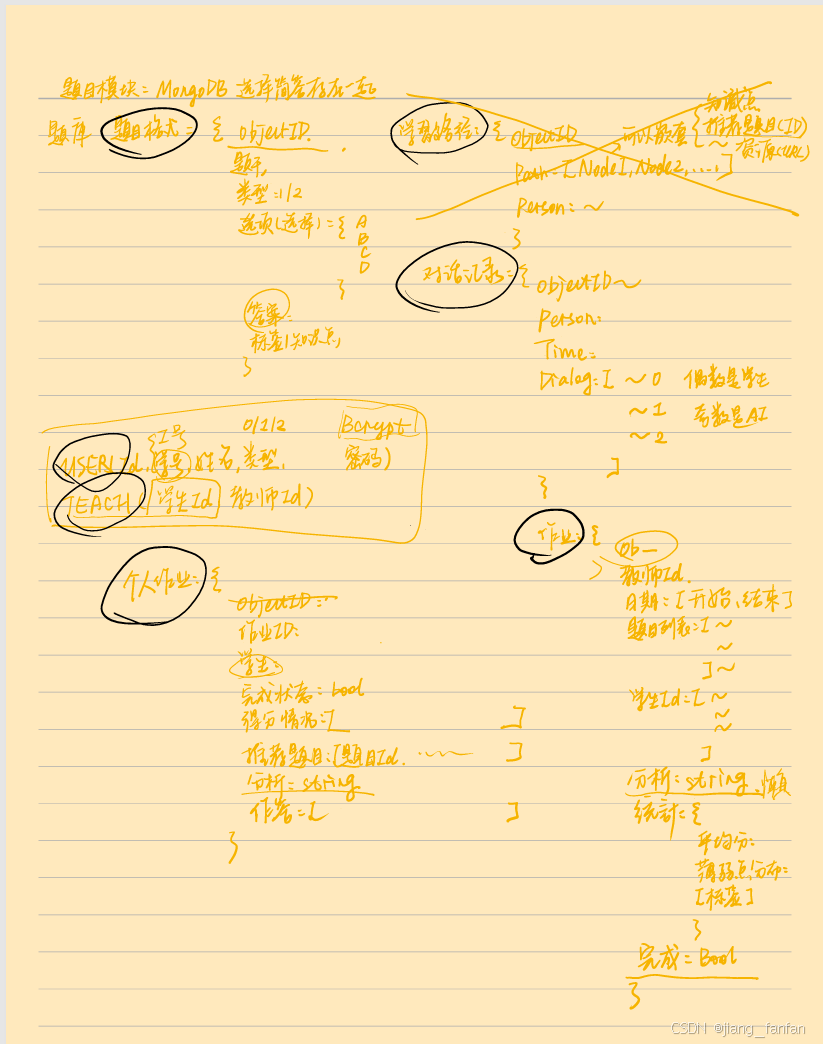 题目模块: MongoDB 选择简答存在一起
题库 题目格式: { ObjectID.
题干,
类型:1/2
选项(选择):{ A
B
C
D
}
答案:
标签|知识点,
}
学习路径: { ObjectID
Path:[Node1, Node2, .....]
Person: ~
}
可以嵌套 { 知识点
推荐题目(ID)
~ 资源(URL)
对话记录: { ObjectID ~
Person:
Time:
Dialog: [ ~ 0 偶数是学生
~ 1 奇数是AI
~ 2
]
}
0/1/2 Bcrypt
USER(Id, 姓名, 类型, 密码)
TEACH(学生Id 教师Id)
个人作业: {
ObjectID:
作业ID:
学生:
完成状态: bool
得分情况:[ ]
推荐题目:[题目Id. ]
分析: string
作答:[ ]
}
作业: {
Ob—
教师Id.
日期:[开始、结束]
题目列表:[ ~
~
] ~
学生Id:[ ~
~
~
]
分析: string、懒
统计:{
平均分:
薄弱点分布:
[标签]
}
完成: Bool
}
CSDN @jiang_fanfan